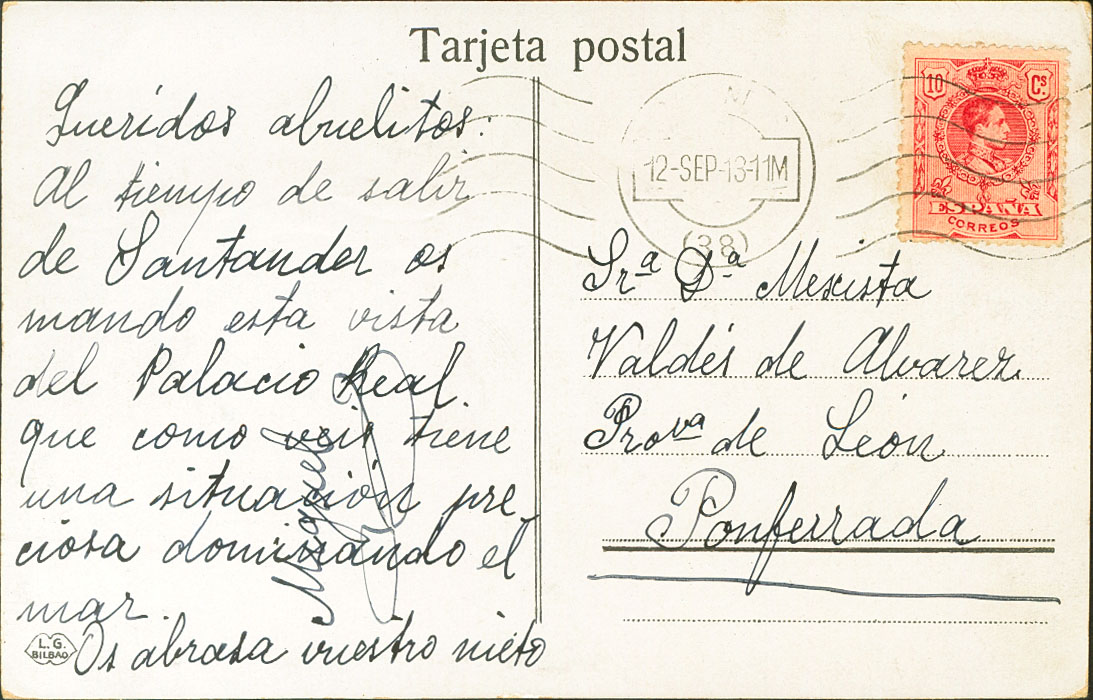 Tarjeta postal
Queridos abuelitos:
Al tiempo de salir
de Santander os
mando esta vista
del Palacio Real
que como veis tiene
una situación pre-
ciosa dominando el
mar.
Os abrasa vuestro nieto
Miguel
L. G.
BILBAO
12-SEP-13-11M
(38)
10 Cs.
ESPAÑA
CORREOS
Srª Dª
Valdés de Alvarez
Provª de León
Ponferrada